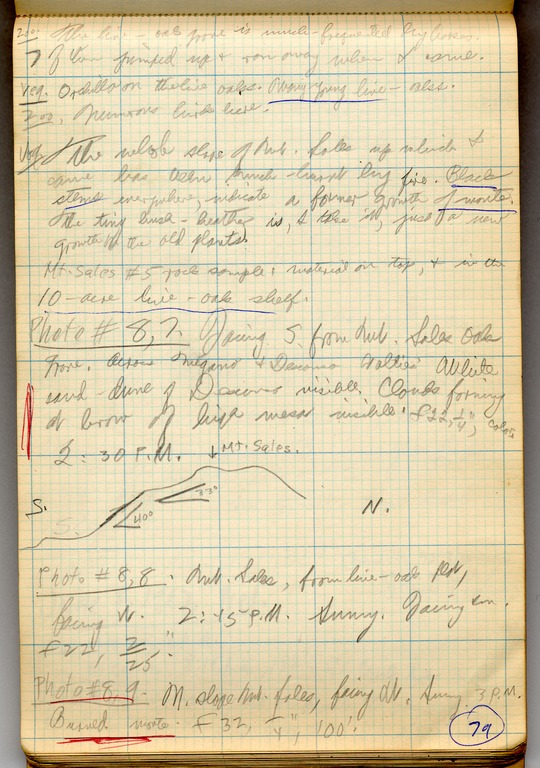 Zoo. The live-oak grove is much-frequented by
7 of them jumped up & ran away when I came.
Veg. on the live oaks. Many young live-oaks.
Zoo, Numerous birds here.
Veg. The whole slope of Mt. Sales up which I
came has been much-burnt by fire. Black
stems everywhere, indicate a former growth of monte.
The tiny bush-heather is, I take it, just a new
growth the old plants.
Mt. Sales #5 rock sample: material on top, & in the
10-acre live-oak shelf.
Photo # 8,7. Facing S. from Mt. Sales Oak
Grove, across & Descanso Vallies. White
sand-dune of Descanso visible. Clouds forming
at brow of high mesa visible. f 22, 1/4", color
2:30 P.M. ↓ Mt. Sales.
33°
S. 40° N.
Photo # 8,8. Mt. Sales, from live-oak
facing N. 2:45 P.M. Sunny. Facing
f 22, 2/25".
Photo # 8,9. N. slope Mt. Sales, facing W. Sunny 3 P.M.
Burned monte. f 32, 1/4", 100'.
79